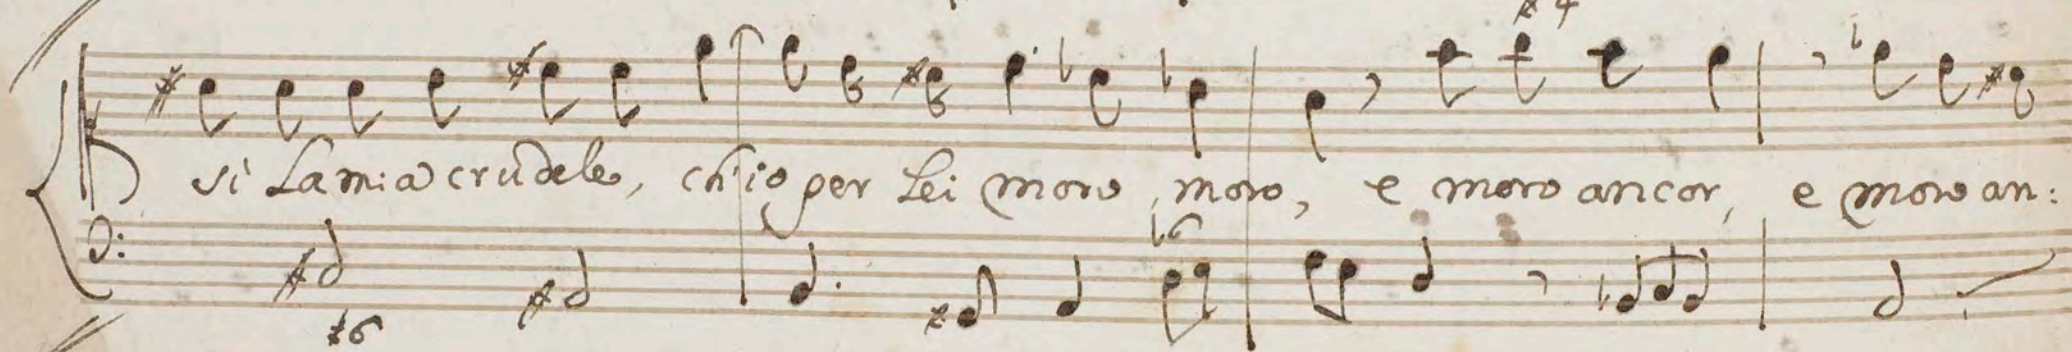 sì La mia crudele, ch'io per Lei moro, moro, e moro ancor, e moro an: